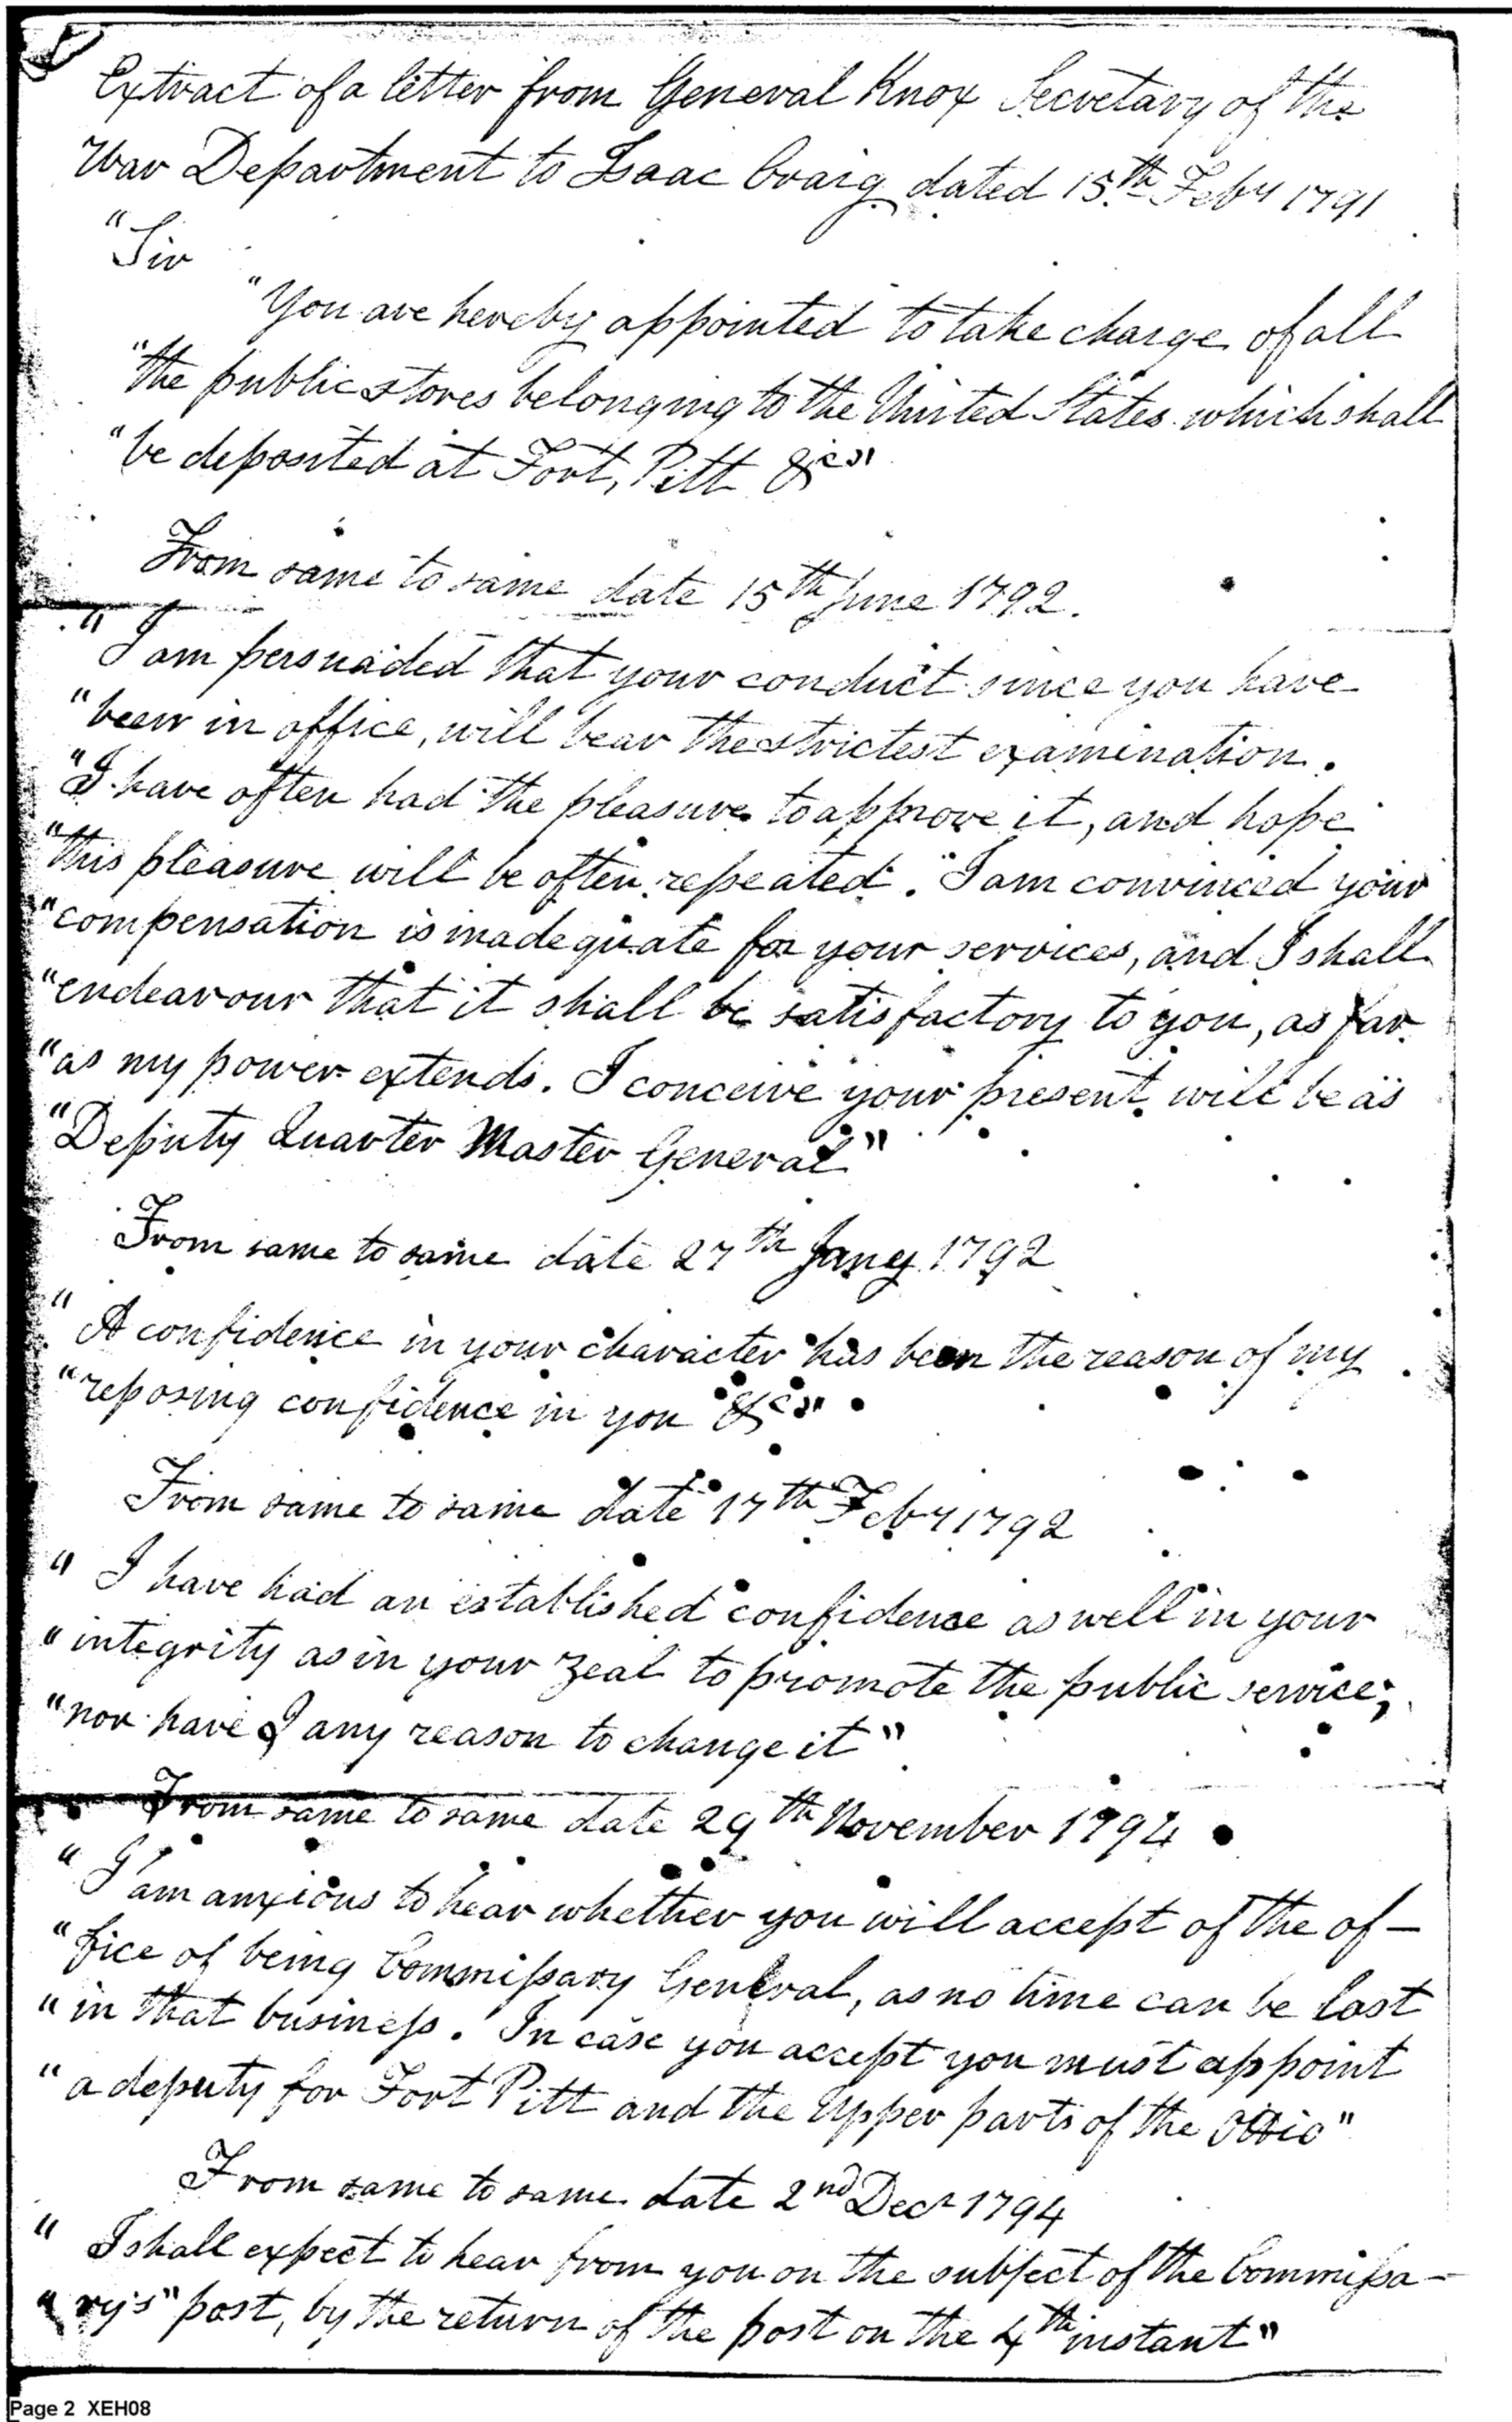 Extract of a letter from General Knox Secretary of the
War Department to Isaac Craig dated 15th Feby 1791
"Sir
"You are hereby appointed to take charge of all
"the public stores belonging to the United States which shall
"be deposited at Fort, Pitt &c"
From same to same date 15th June 1792.
"I am persuaded that your conduct since you have
"been in office, will bear the strictest examination.
"I have often had the pleasure to approve it, and hope
"this pleasure will be often repeated. "I am convinced your
"compensation is inadequate for your services, and I shall
"endeavour that it shall be satisfactory to you, as far
"as my power extends. I conceive your present will be as
"Deputy Quarter Master General"
From same to same date 27th Jany 1792
"A confidence in your character has been the reason of my
"reposing confidence in you &c"
From same to same date 17th Feby 1792
"I have had an established confidence as well in your
"integrity as in your zeal to promote the public service;
"nor have I any reason to change it"
From same to same date 29th November 1794
"I am anxious to hear whether you will accept of the of-
"fice of being Commissary General, as no time can be lost
"in that business. In case you accept you must appoint
"a deputy for Fort Pitt and the Upper parts of the Ohio"
From same to same date 2nd Decr 1794
"I shall expect to hear from you on the subject of the Commissa-
"ry's" post, by the return of the post on the 4th instant"
Page 2 XEH08